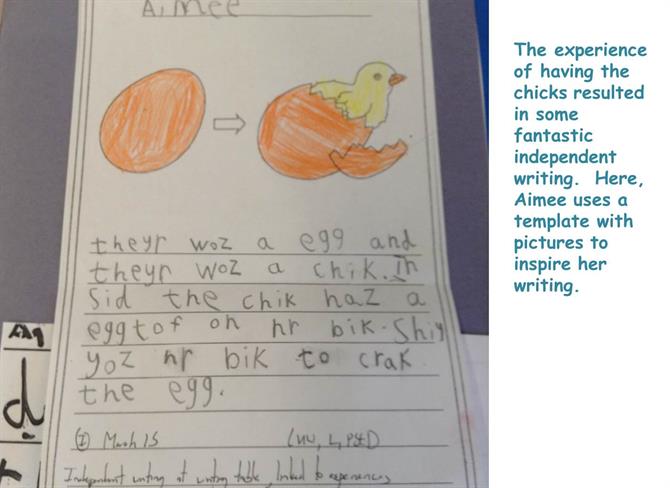 Aimee
theyr woz a egg and
theyr woz a chik. In
Sid the chik haz a
eggtof on hr bik. Shiy
yoz hr bik to crak
the egg.
I March 15
Independent writing at writing table, linked to experiences
The experience
of having the
chicks resulted
in some
fantastic
independent
writing. Here,
Aimee uses a
template with
pictures to
inspire her
writing.